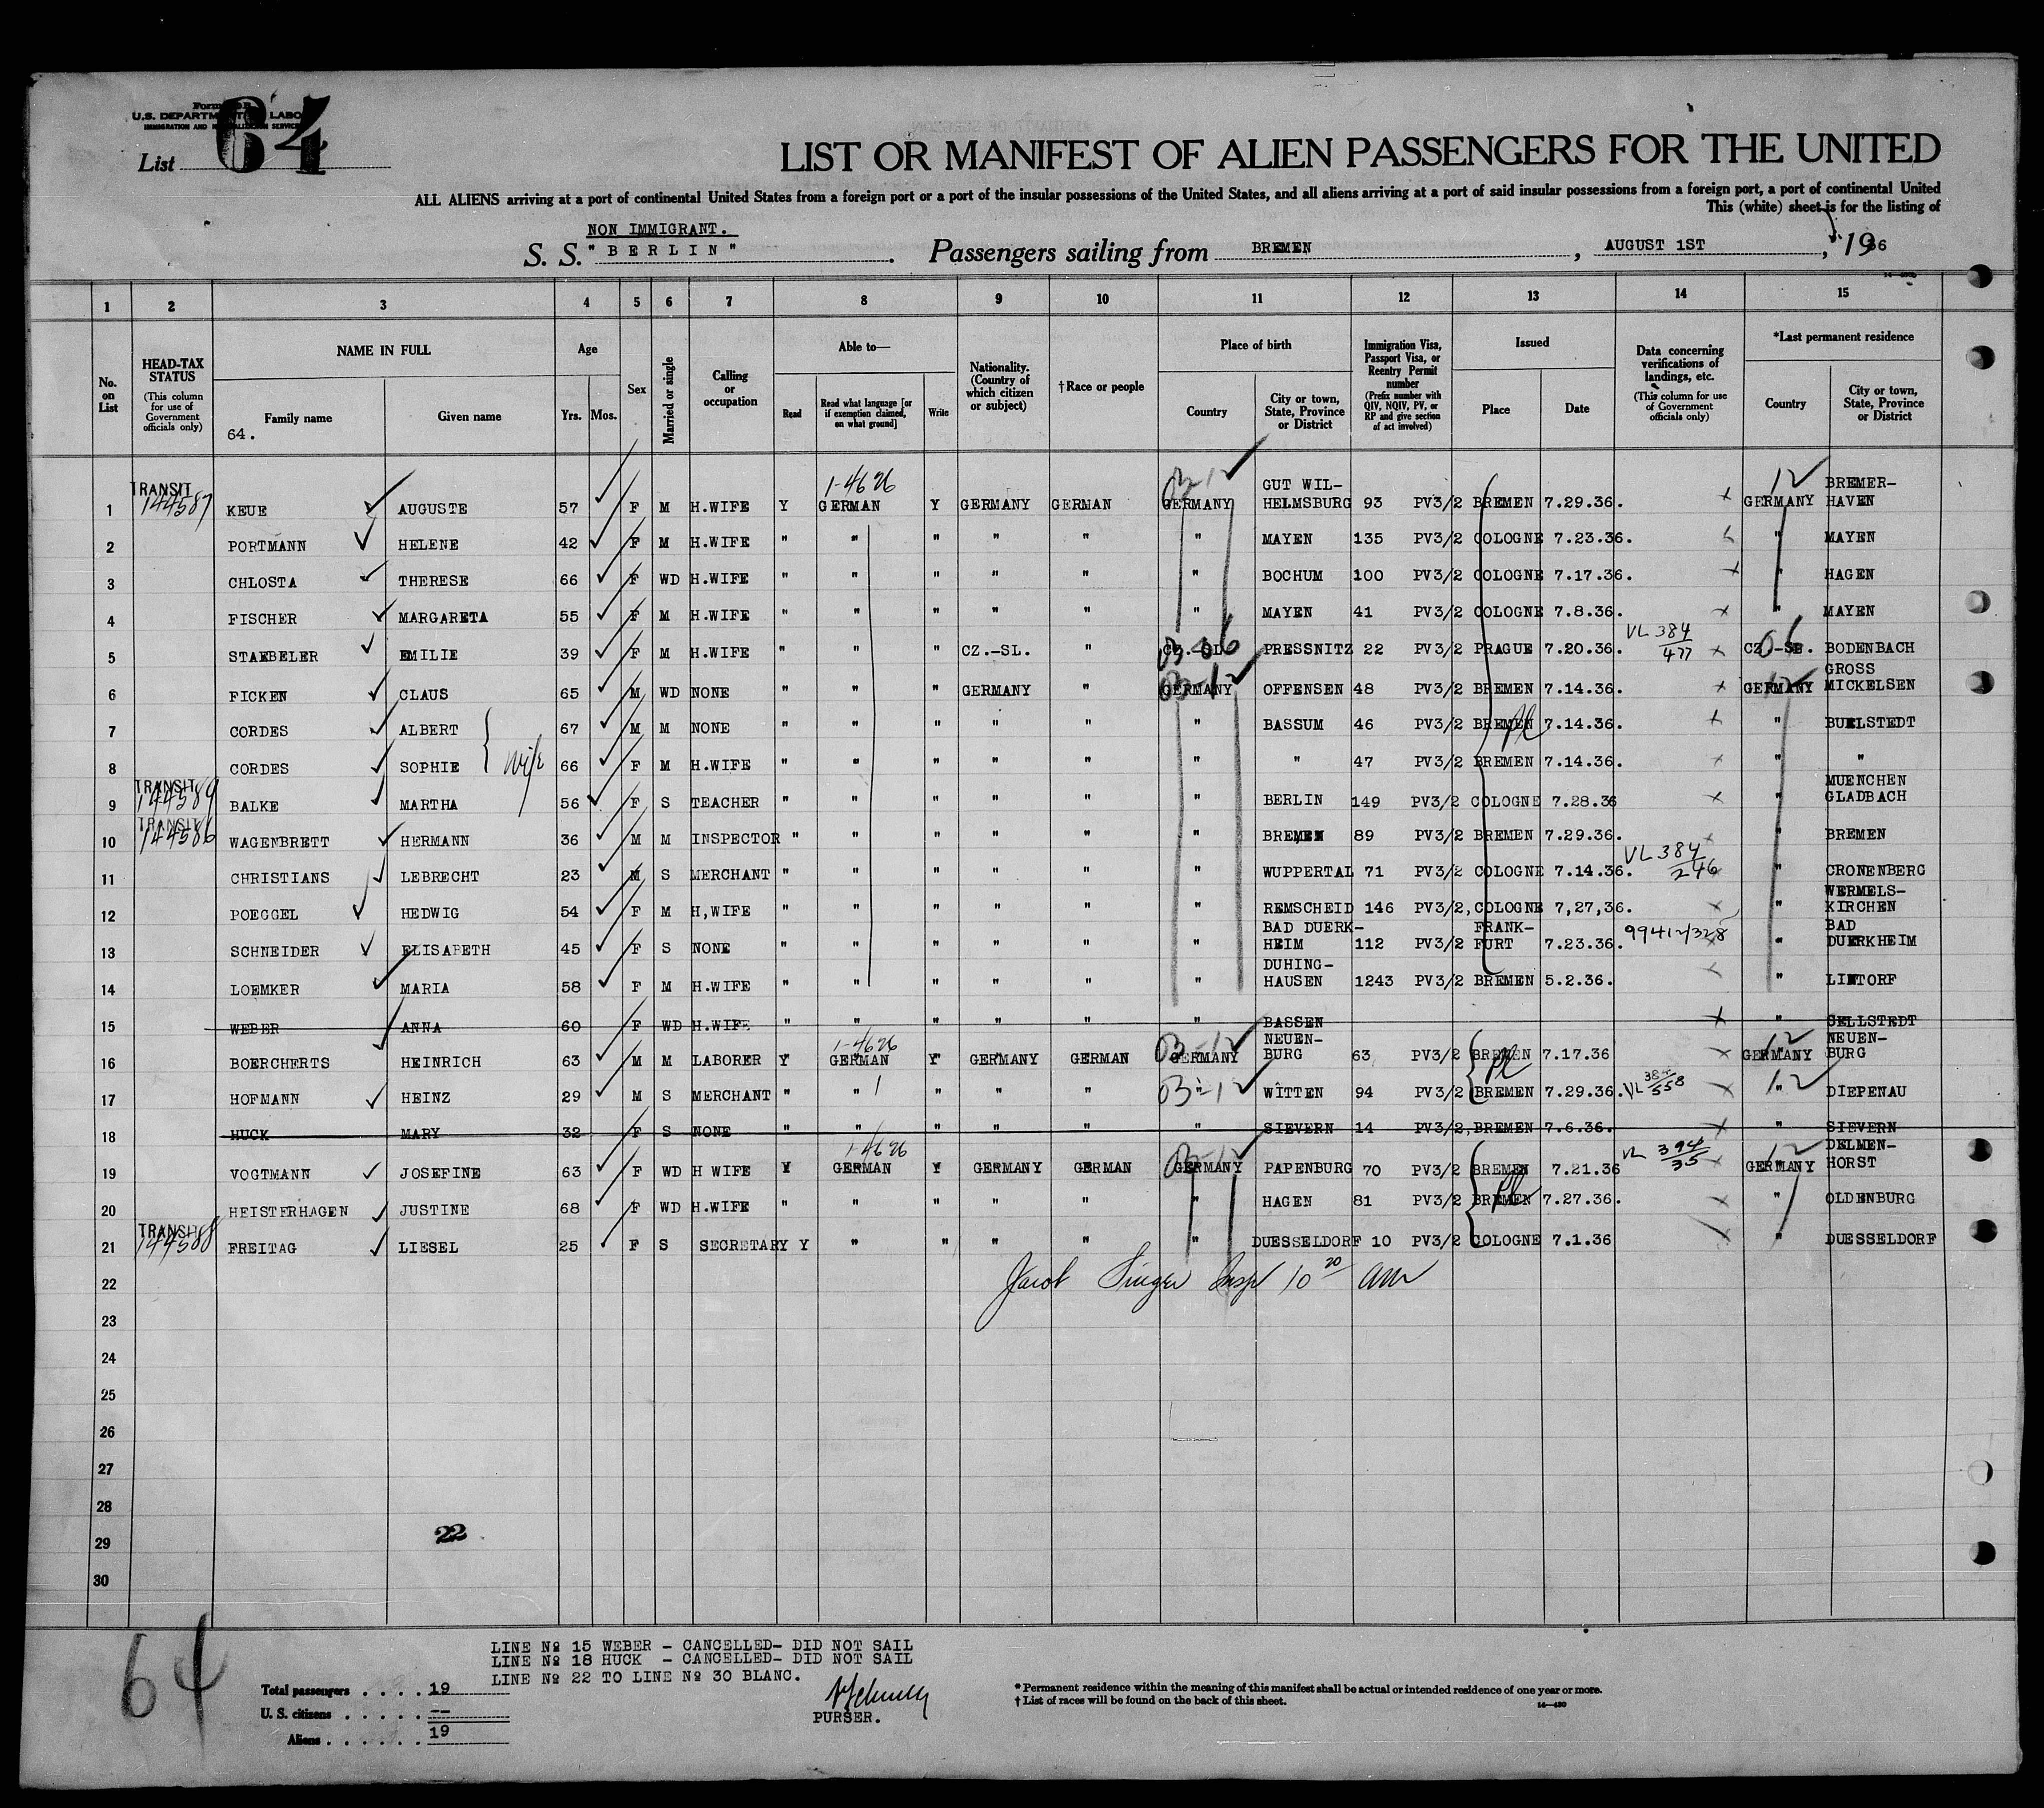 64
List
U.S. DEPARTMENT LABOR
LIST OR MANIFEST OF ALIEN PASSENGERS FOR THE UNITED
ALL ALIENS arriving at a port of continental United States from a foreign port or a port of the insular possessions of the United States, and all aliens arriving at a port of said insular possessions from a foreign port, a port of continental United
This (white) sheet is for the listing of
NON IMMIGRANT.
S. S. "BERLIN". Passengers sailing from BREMEN, AUGUST 1ST, 1936
1 2 3 4 5 6 7 8 9 10 11 12 13 14 15
No. on List
HEAD-TAX STATUS (This column for use of Government officials only)
NAME IN FULL Family name Given name
64.
Age Yrs. Mos.
Sex
Married or single
Calling or occupation
Able to— Read Read what language [or if exemption claimed, on what ground] Write
Nationality. (Country of which citizen or subject)
†Race or people
Place of birth Country City or town, State, Province or District
Immigration Visa, Passport Visa, or Reentry Permit number (Prefix number with QIV, NQIV, PV, or RP and give section of act involved)
Issued Place Date
Data concerning verifications of landings, etc. (This column for use of Government officials only)
*Last permanent residence Country City or town, State, Province or District
1 TRANSIT 144587 KEUE AUGUSTE 57 F M H.WIFE Y 1-4626 GERMAN Y GERMANY GERMAN 03-12 GERMANY GUT WIL-HELMSBURG 93 PV3/2 BREMEN 7.29.36. 12 GERMANY BREMER-HAVEN
2 PORTMANN HELENE 42 F M H.WIFE " " " " " " MAYEN 135 PV3/2 COLOGNE 7.23.36. " MAYEN
3 CHLOSTA THERESE 66 F WD H.WIFE " " " " " " BOCHUM 100 PV3/2 COLOGNE 7.17.36. " HAGEN
4 FISCHER MARGARETA 55 F M H.WIFE " " " " " " MAYEN 41 PV3/2 COLOGNE 7.8.36. " MAYEN
5 STAEBELER EMILIE 39 F M H.WIFE " " " CZ.-SL. " 03-06 PRESSNITZ 22 PV3/2 PRAGUE 7.20.36. VL 384/477 06 BODENBACH
6 FICKEN CLAUS 65 M WD NONE " " " GERMANY " 03-12 GERMANY OFFENSEN 48 PV3/2 BREMEN 7.14.36. 12 GERMANY GROSS MICKELSEN
7 CORDES ALBERT 67 M M NONE " " " " " " BASSUM 46 PV3/2 BREMEN 7.14.36. " BUELSTEDT
8 CORDES SOPHIE wife 66 F M H.WIFE " " " " " " " 47 PV3/2 BREMEN 7.14.36. " "
9 TRANSIT 144589 BALKE MARTHA 56 F S TEACHER " " " " " " BERLIN 149 PV3/2 COLOGNE 7.28.36 " MUENCHEN GLADBACH
10 TRANSIT 144586 WAGENBRETT HERMANN 36 M M INSPECTOR " " " " " " BREMEN 89 PV3/2 BREMEN 7.29.36. " BREMEN
11 CHRISTIANS LEBRECHT 23 M S MERCHANT " " " " " " WUPPERTAL 71 PV3/2 COLOGNE 7.14.36. VL 384/246 " CRONENBERG
12 POEGGEL HEDWIG 54 F M H,WIFE " " " " " " REMSCHEID 146 PV3/2, COLOGNE 7,27,36. " WERMELS-KIRCHEN
13 SCHNEIDER ELISABETH 45 F S NONE " " " " " " BAD DUERK-HEIM 112 PV3/2 FRANK-FURT 7.23.36. 99412/328 " BAD DUERKHEIM
14 LOEMKER MARIA 58 F M H.WIFE " " " " " " DUHING-HAUSEN 1243 PV3/2 BREMEN 5.2.36. " LINTORF
15 WEBER ANNA 60 F WD H.WIFE " " " " " " BASSEN " SELLSTEDT
16 BOERCHERTS HEINRICH 63 M M LABORER Y 1-4626 GERMAN Y GERMANY GERMAN 03-12 GERMANY NEUEN-BURG 63 PV3/2 BREMEN 7.17.36 12 GERMANY NEUEN-BURG
17 HOFMANN HEINZ 29 M S MERCHANT " " " " " 03-12 " WITTEN 94 PV3/2 BREMEN 7.29.36. VL 384/558 12 " DIEPENAU
18 HUCK MARY 32 F S NONE " " " " " " SIEVERN 14 PV3/2, BREMEN 7.6.36. " SIEVERN
19 VOGTMANN JOSEFINE 63 F WD H WIFE Y 1-4626 GERMAN Y GERMANY GERMAN 03-12 GERMANY PAPENBURG 70 PV3/2 BREMEN 7.21.36 VL 394/35 12 GERMANY DELMEN-HORST
20 HEISTERHAGEN JUSTINE 68 F WD H.WIFE " " " " " " HAGEN 81 PV3/2 BREMEN 7.27.36. " OLDENBURG
21 TRANSIT 144588 FREITAG LIESEL 25 F S SECRETARY Y " " " " " DUESSELDORF 10 PV3/2 COLOGNE 7.1.36 " DUESSELDORF
22 Jacob Singer Insp 10 20 am
23
24
25
26
27
28
29 22
30
64
LINE № 15 WEBER - CANCELLED- DID NOT SAIL
LINE № 18 HUCK - CANCELLED- DID NOT SAIL
LINE № 22 TO LINE № 30 BLANC.
Total passengers . . . . 19
U. S. citizens . . . . . --
Aliens . . . . . . 19
PURSER.
* Permanent residence within the meaning of this manifest shall be actual or intended residence of one year or more.
† List of races will be found on the back of this sheet.